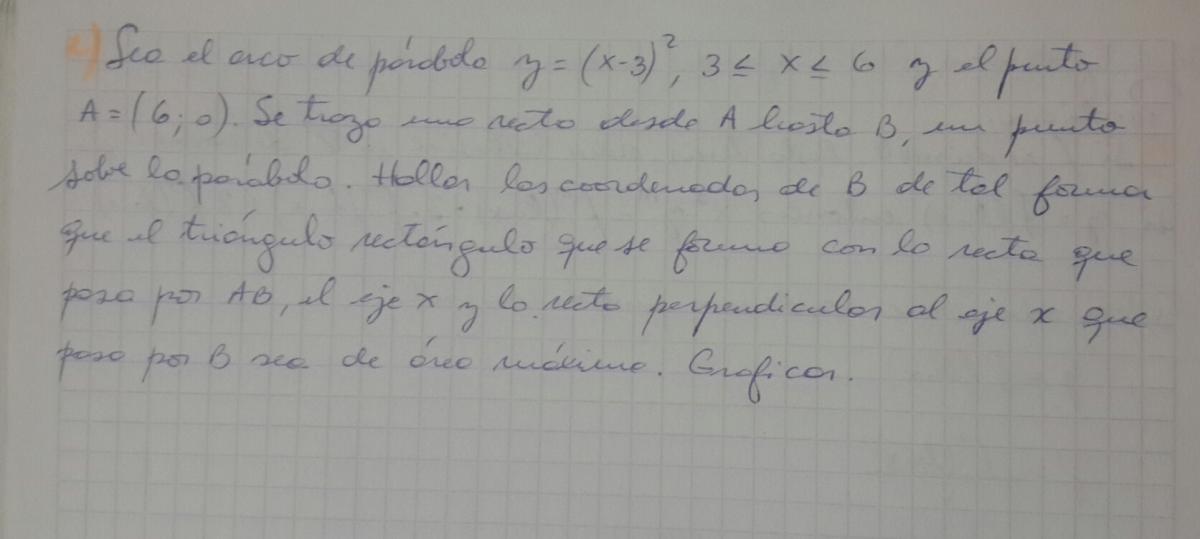 4) Sea el arco de parábola y = (x-3)², 3 ≤ x ≤ 6 y el punto
A = (6; 0). Se traza una recta desde A hasta B, un punto
sobre la parábola. Hallar las coordenadas de B de tal forma
que el triángulo rectángulo que se forma con la recta que
pasa por AB, el eje x y la recta perpendicular al eje x que
pasa por B sea de área máxima. Graficar.